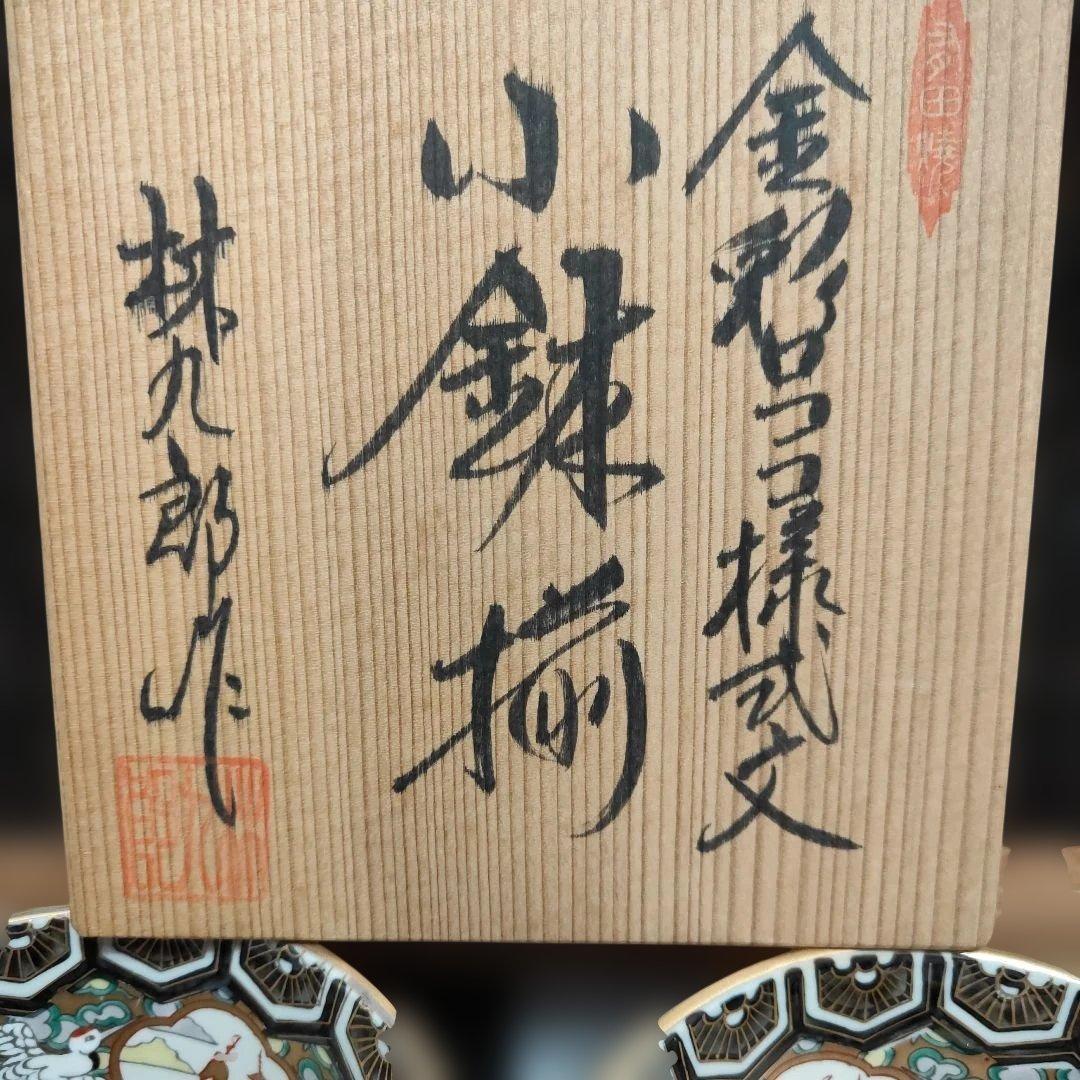 金彩ロココ様式文
小鉢揃
林九郎作